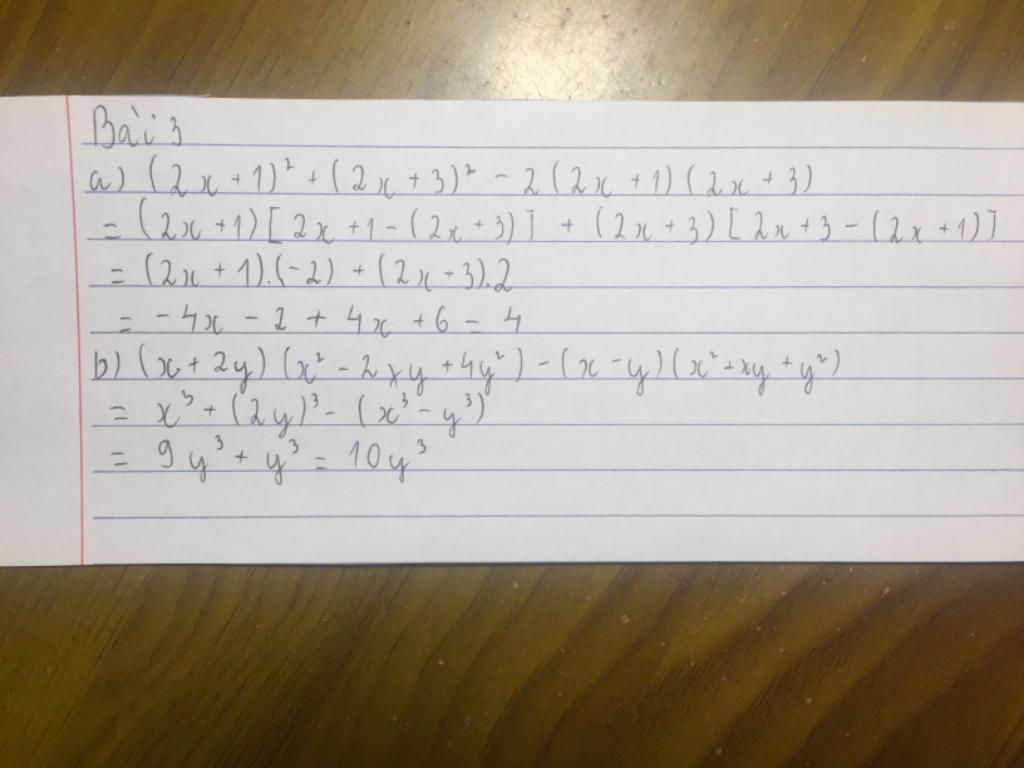 Bài 3
a) (2x + 1)² + (2x + 3)² - 2(2x + 1)(2x + 3)
= (2x + 1)[2x + 1 - (2x + 3)] + (2x + 3)[2x + 3 - (2x + 1)]
= (2x + 1).(-2) + (2x + 3).2
= - 4x - 2 + 4x + 6 = 4
b) (x + 2y)(x² - 2xy + 4y²) - (x - y)(x² + xy + y²)
= x³ + (2y)³ - (x³ - y³)
= 9y³ + y³ = 10y³